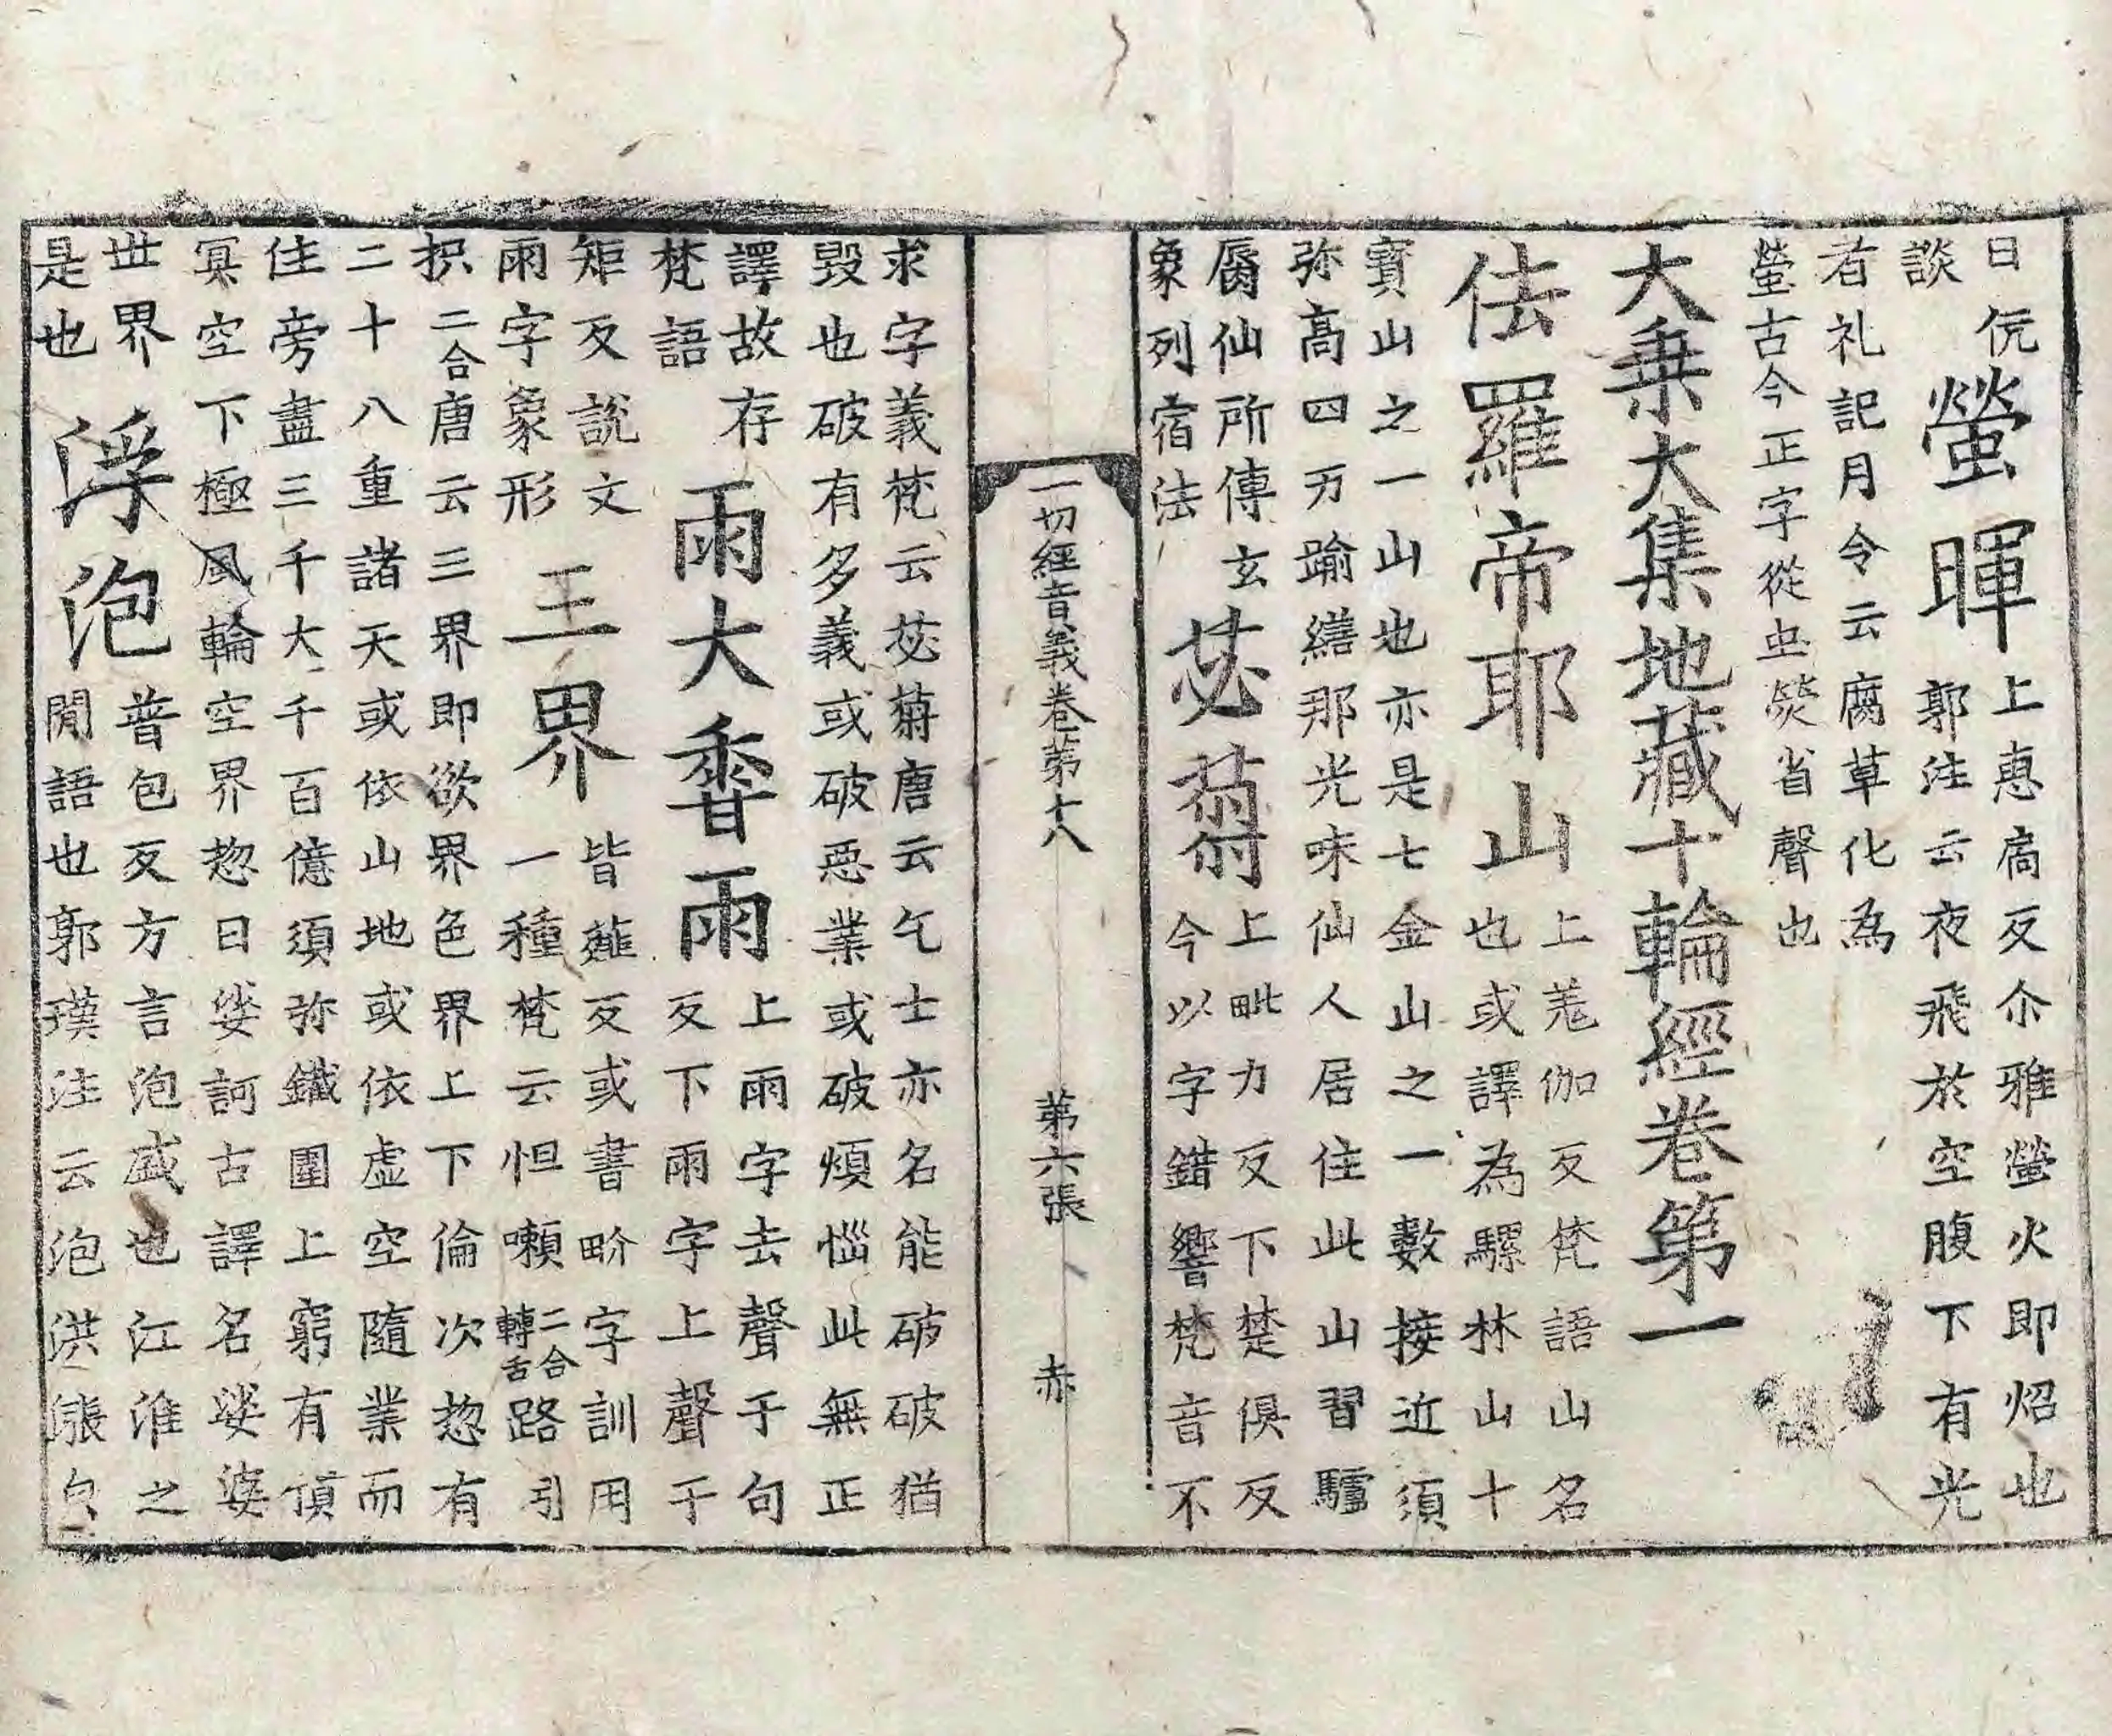 日侊
談
螢暉
上惠扃反尒雅螢火即炤也
郭注云夜飛於空腹下有光
者礼記月令云腐草化為
螢古今正字從虫熒省聲也
大乗大集地藏十輪經卷第一
佉羅帝耶山
上羗伽反梵語山名
也或譯為騾林山十
寳山之一山也亦是七金山之一數接近須
弥髙四万踰繕那光味仙人居住此山習驢
脣仙所傳玄
象列宿法
苾蒭
上毗力反下楚俱反
今以字錯響梵音不
一切經音義卷第十八
第六張
赤
求字義梵云苾蒭唐云乞士亦名能破破猶
毀也破有多義或破惡業或破煩惱此無正
譯故存
梵語
雨大香雨
上雨字去聲于句
反下雨字上聲于
矩反說文
雨字象形
三界
皆薤反或書畍字訓用
一種梵云怛嚩二合轉舌路引
枳二合唐云三界即欲界色界上下倫次惣有
二十八重諸天或依山地或依虛空隨業而
住旁盡三千大千百億須弥鐵圍上窮有頂
冥空下極風輪空界惣曰娑訶古譯名娑婆
世界
是也
浮泡
普包反方言泡盛也江淮之
閒語也郭璞注云泡洪漲